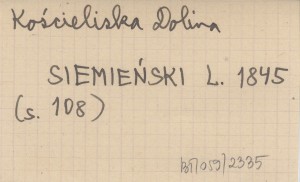 Kościeliska Dolina
SIEMIEŃSKI L. 1845
(s. 108)
BT/059/2335